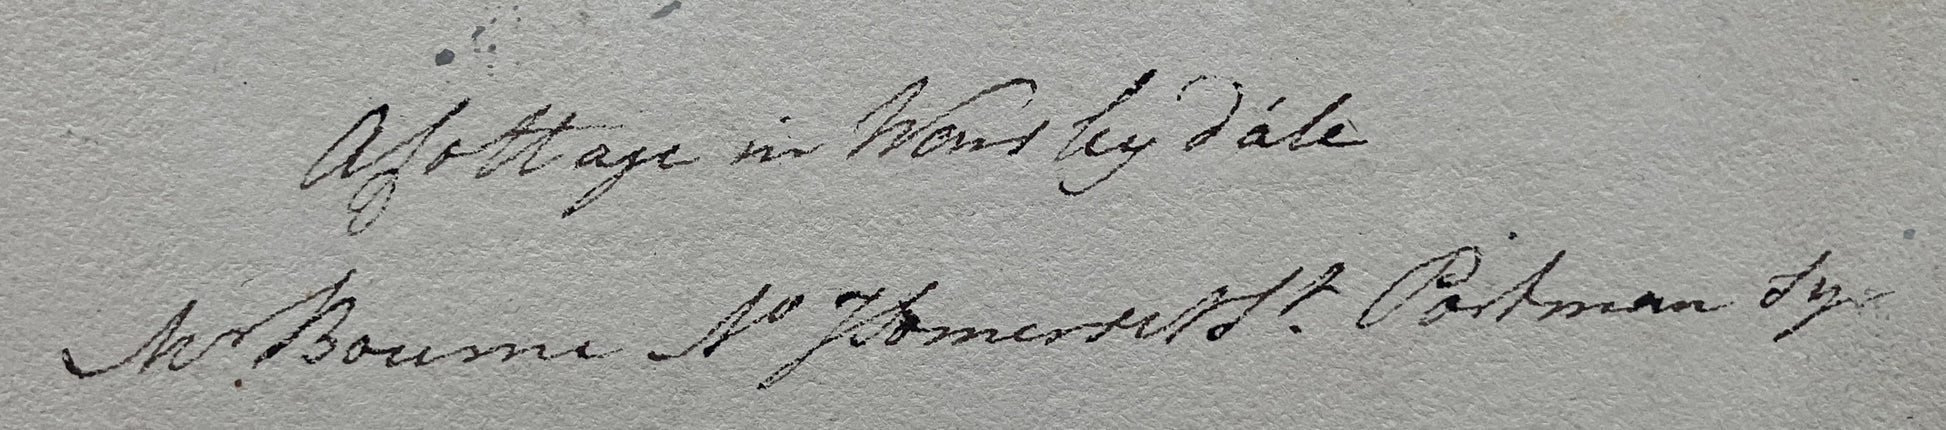 A Cottage in Wensleydale
Mr Bourne No 7 Somerset St. Portman Sq